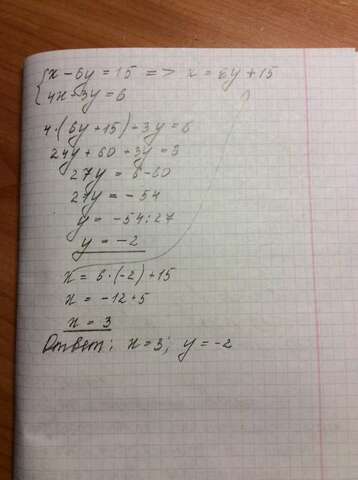 {x - 6y = 15 => x = 6y + 15
{4x + 3y = 6
4·(6y + 15) + 3y = 6
24y + 60 + 3y = 3
27y = 6 - 60
27y = - 54
y = -54 : 27
y = -2
x = 6 · (-2) + 15
x = -12 + 5
x = 3
Ответ: x = 3; y = -2